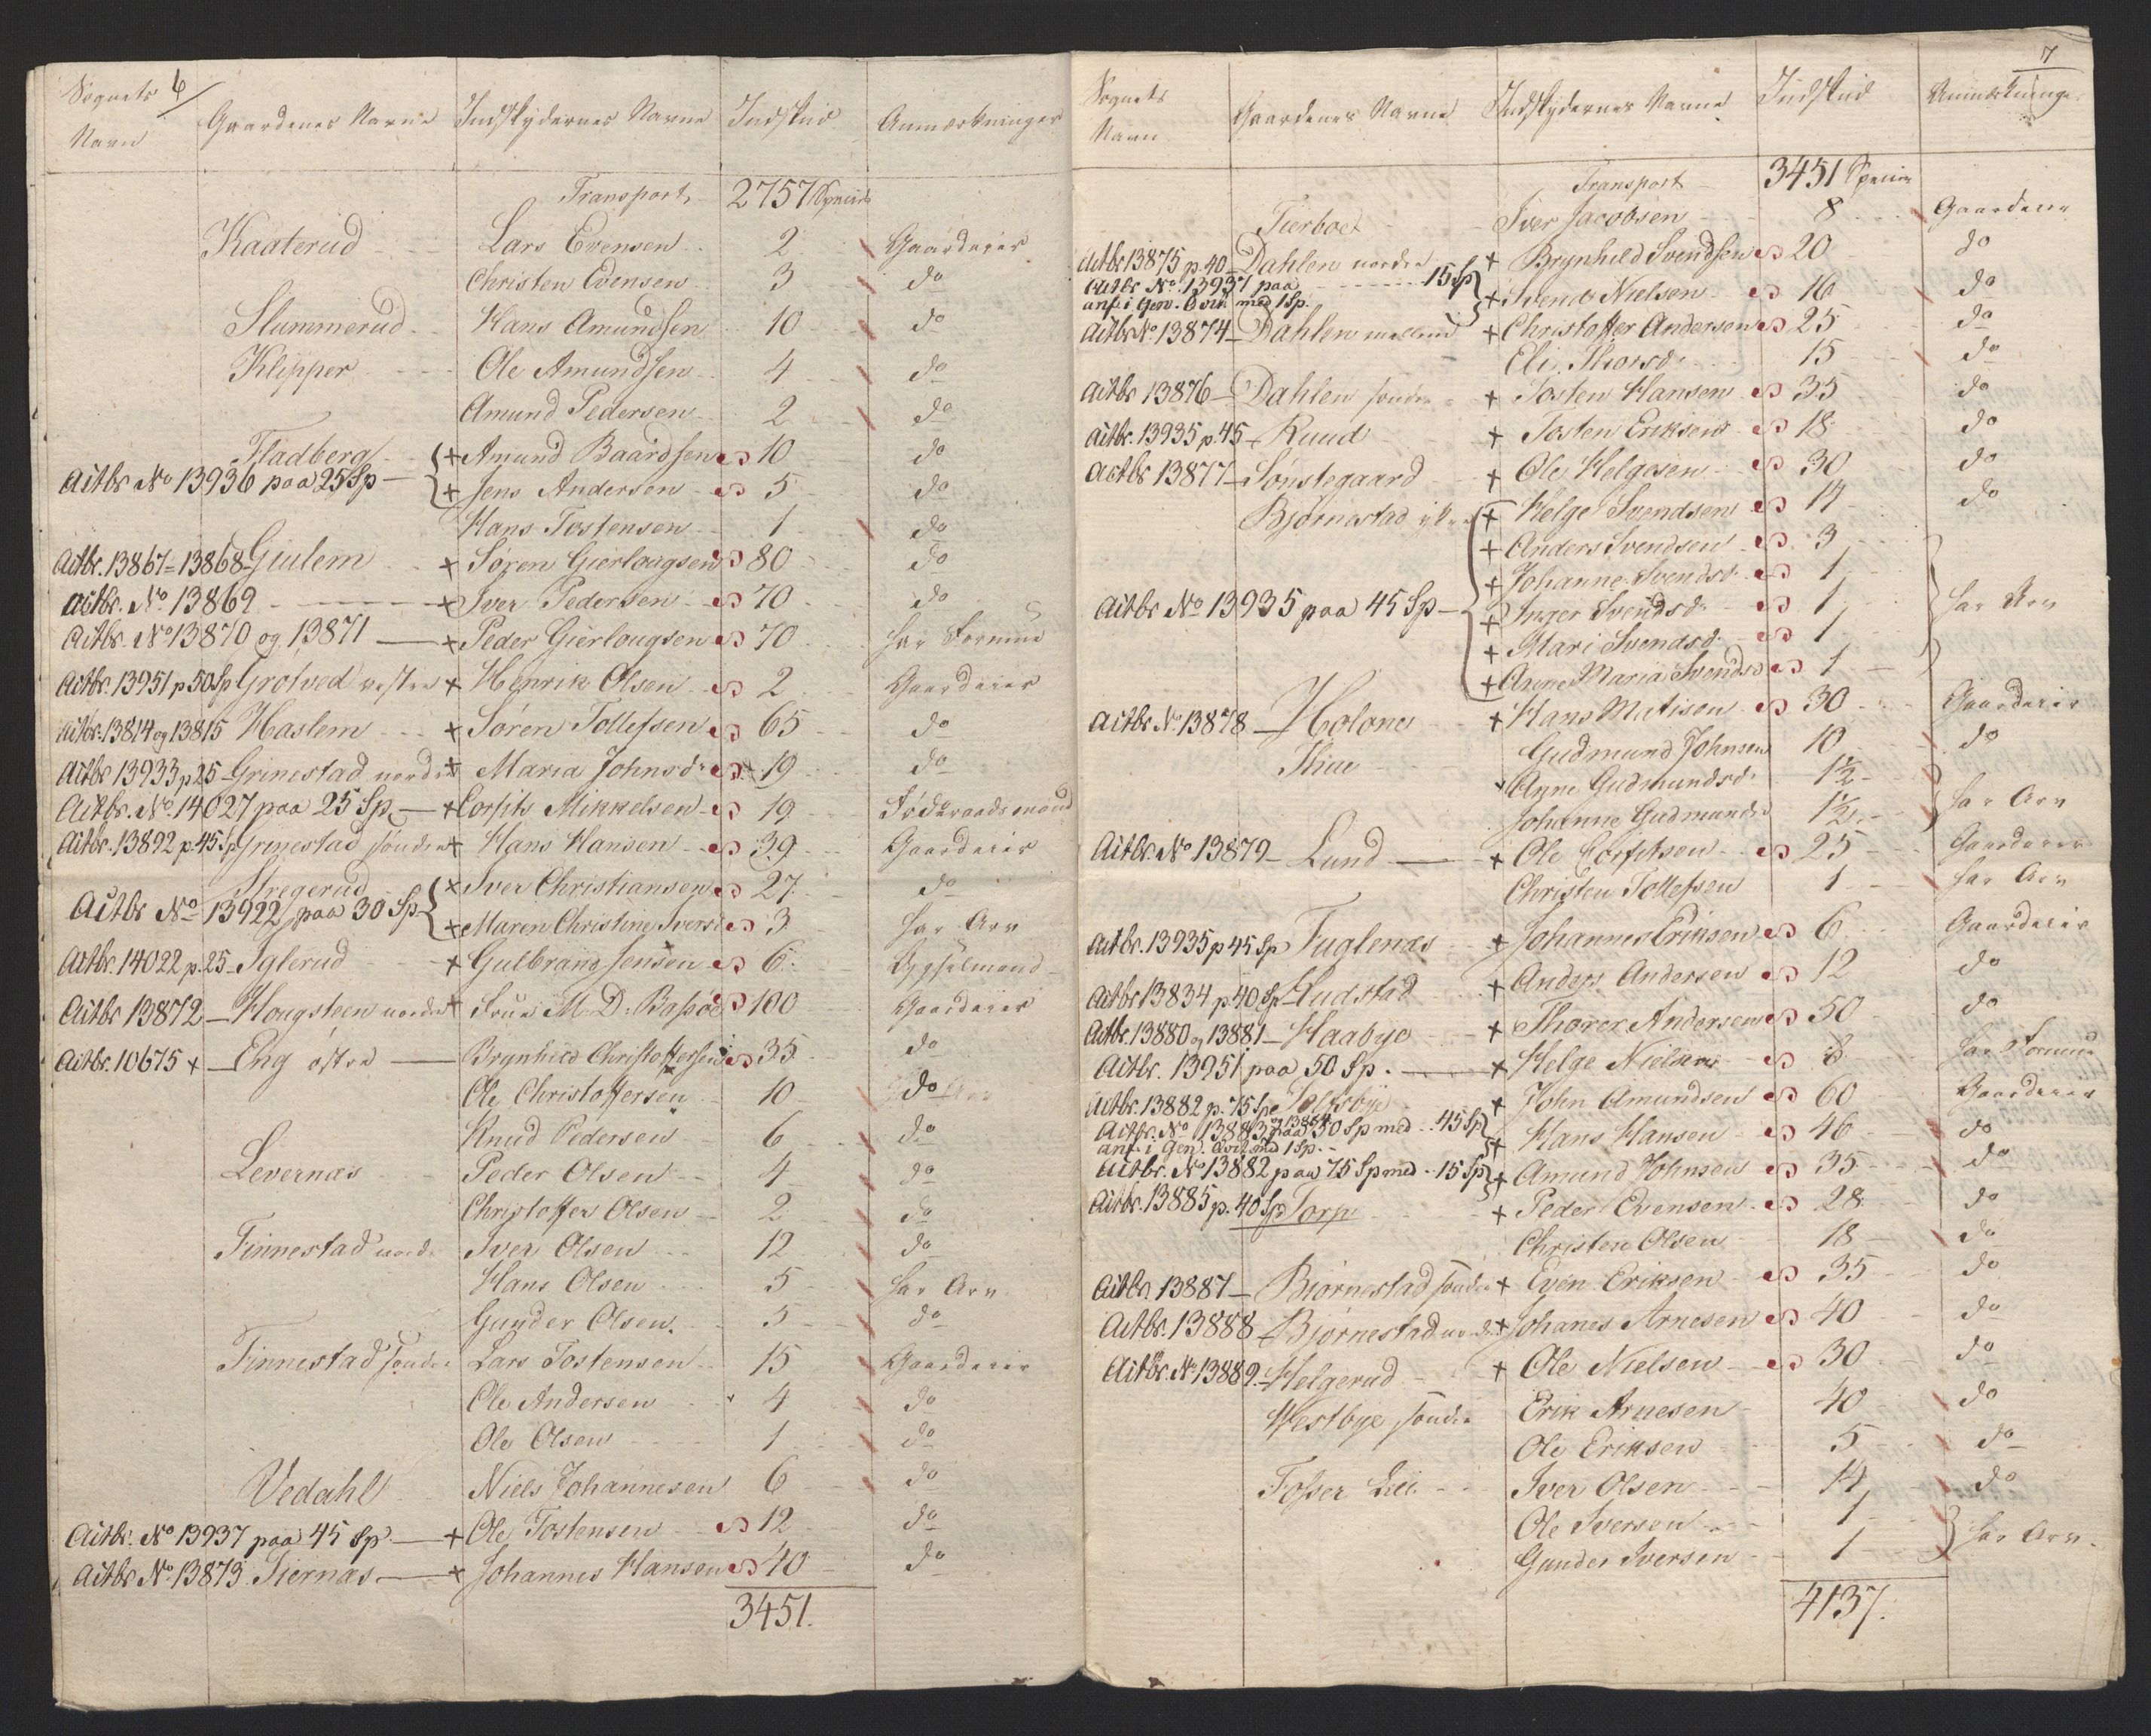 6
Sognets Navn | Gaardenes Navne | Indskydernes Navne | Indskud | Anmærkninger
Transport 2757 Specier
Kaaterud Lars Evensen 2 Gaardeier
Christen Evensen 3 do
Slummerud Hans Amundsen 10 do
Klipper Ole Amundsen 4 do
Amund Pedersen 2 do
Fladberg + Amund Baardsen 10 do
Actbr No 13936 paa 25 Sp + Jens Andersen 5 do
Hans Tostensen 1 do
Actbr. 13867-13868 Giulem + Søren Gierlougsen 80 do
Actbr. No 13869 + Iver Pedersen 70 do
Actbr. No 13870 og 13871 + Peder Gierlougsen 70 har Formue
Actbr. 13951 p 50 Sp Grotved vestre + Henrik Olsen 2 Gaardeier
Actbr. 13814 og 13815 Haslem + Søren Tollefsen 65 do
Actbr 13933 p 25 Grinestad nordre + Maria Johnsdr 19 do
Actbr. No 14027 paa 25 Sp + Corfits Mikkelsen 19 Föderaadsmand
Actbr. 13892 p 45 Sp Grinestad søndre + Hans Hansen 39 Gaardeier
Stregerud + Iver Christiansen 27 do
Actbr No 13922 paa 30 Sp + Maren Christine Iversd 3 har Arv
Actbr. 14022 p. 25 Iglerud + Gulbrand Jensen 6 Bygselmand
Actbr 13872 Hougsteen nordre + Frue M. D. Bassøe 100 Gaardeier
Actbr. 10675 + Eng østre Brynhild Christoffersen 35 do
Ole Christoffersen 10 do
Knud Pedersen 6 do
Levernæs Peder Olsen 4 do
Christoffer Olsen 2 do
Finnestad nord. Iver Olsen 12 do
Hans Olsen 5 har Arv
Gunder Olsen. 5 do
Finnestad søndre Lars Tostensen 15 Gaardeier
Ole Andersen 4 do
Ole Olsen 1 do
Vedahl Niels Johannesen 6 do
Actbr. No 13937 paa 45 Sp. + Ole Tostensen 12 do
Actbr No. 13873 Tiernæs + Johannes Hansen 40 do
3451.
7
Sognets Navn | Gaardenes Navne | Indskydernes Navne | Indskud | Anmærkninger
Transport 3451 Specier
Tierboet Iver Jacobsen 8 Gaardeier
Actbr 13875 p. 40 Dahlen nordre + Brynhild Svendsen 20 do
Actbr No. 13937 paa 15 Sp + Svend Nielsen 16 do
anf. i Gen. Qvit. med 1 Sp.
Actbr No. 13874 Dahlen mellem + Christoffer Andersen 25 do
Eli Thorsdr 15 do
Actbr 13876 Dahlen søndre + Tosten Hansen 35 do
Actbr. 13935 p. 45 Ruud + Tosten Eriksen 18 do
Actbr 13877 Sønstegaard + Ole Helgesen 30 do
Bjørnestad + Helge Svendsen 14 do
+ Anders Svendsen 3
+ Johanne Svendsd 1
Actbr No 13935 paa 45 Sp + Inger Svendsd 1 har Arv
+ Mari Svendsd. 1
+ Anne Maria Svendsd 1
Actbr. No. 13878 Holone + Hans Matisen 30 Gaardeier
Thue Gudmund Johnsen 10 do
Anne Gudmundsdr 1½
Johanne Gudmundsd 1½ har Arv
Actbr. No 13879 Lund + Ole Corfitsen 25 Gaardeier
Christen Tollefsen 1 har Arv
Actbr. 13935 p 45 Sp Fuglenæs + Johannes Eriksen 6 Gaardeier
Actbr 13834 p 40 Sp Rudstad + Anders Andersen 12 do
Actbr. 13880 og 13881 Haabye + Thorer Andersen 50 do
Actbr. 13951 paa 50 Sp. + Helge Nielsen 8 har Formue
Actbr. 13882 p. 75 Sp + John Amundsen 60 Gaardeier
Actbr. No 13883 og 13884 paa 30 Sp med 45 Sp + Hans Hansen 46 do
anf. i Gen. Qvit. med 1 Sp.
Actbr. No 13882 paa 75 Sp med 15 Sp + Amund Johnsen 35 do
Actbr. 13885 p. 40 Sp Torp + Peder Evensen 28 do
Christen Olsen 18 do
Actbr. 13887 Biørnestad søndre + Even Eriksen 35 do
Actbr. 13888 Bjørnestad nord + Johanes Arnesen 40 do
Actbr. No. 13889. Helgerud + Ole Nielsen 30 do
Westbye søndre Erik Arnesen 40 do
Ole Eriksen 5 do
Fosser Lill. Iver Olsen 14 do
Ole Iversen 1
Gunder Iversen 1 har Arv.
4137.